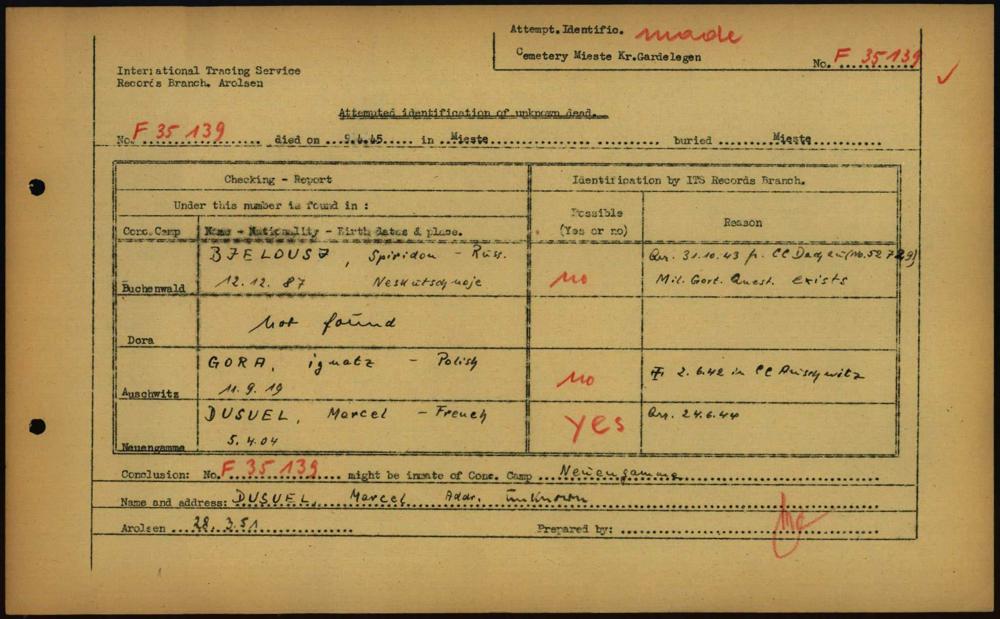 Attempt. Identific. made
Cemetery Mieste Kr. Gardelegen
No. F 35 139
International Tracing Service
Records Branch. Arolsen
Attempted identification of unknown dead.
No. F 35 139 died on 9.4.45 in Mieste buried Mieste
Checking - Report
Identification by ITS Records Branch.
Under this number is found in :
Possible
(Yes or no)
Reason
Conc. Camp
Name - Nationality - Birth dates & place.
BJELOUSJ, Spiridon - Russ.
Arr. 31.10.43 fr. CC Dachau (No. 52 729)
Buchenwald
12.12.87 Neskutschnoje
no
Mil. Gort. Quest. exists
not found
Dora
GORA, ignatz - Polish
✝ 2.6.42 in CC Auschwitz
Auschwitz
11.9.19
no
DUSUEL, Marcel - French
Yes
Arr. 24.6.44
Neuengamme
5.4.04
Conclusion: No. F 35 139 might be inmate of Conc. Camp Neuengamme
Name and address: DUSUEL, Marcel Addr. unknown
Arolsen 28.3.51 Prepared by: